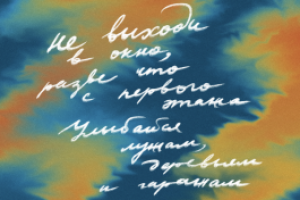 Не выходи
в окно,
разве что
с первого
этажа
Улыбайся
лужам,
деревьям
и гаражам